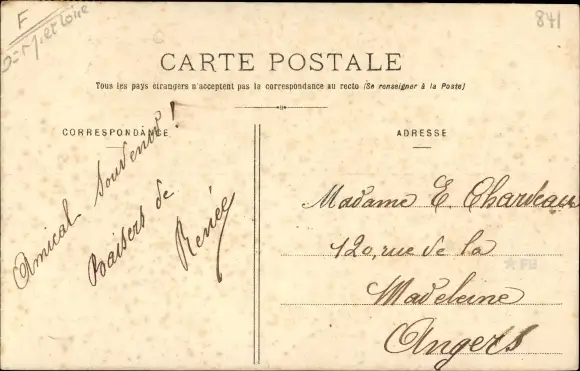 F
841
CARTE POSTALE
Tous les pays étrangers n'acceptent pas la correspondance au recto (Se renseigner à la Poste)
CORRESPONDANCE
Amical souvenir!
Baisers de
Renée
ADRESSE
Madame E. Chardeau
120, rue de la
Madeleine
Angers